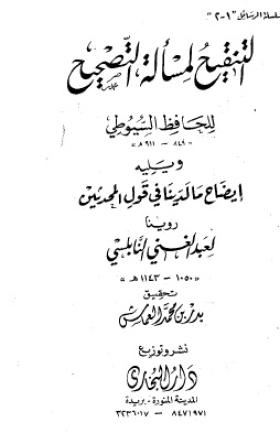 سلسلة الرسائل "١-٢"
التنقيح لمسألة التصحيح
للحافظ السيوطي
٨٤٩ - ٩١١ هـ
ويليه
إيضاح ما لدينا في قول المحدثين
روينا
لعبد الغني النابلسي
«١٠٥٠ - ١١٤٣ هـ»
تحقيق
بدر بن محمد العماش
نشر وتوزيع
دار البخاري
المدينة المنورة - بريدة
٨٤٧١٩٧١ - ٣٢٣٦٠١٧